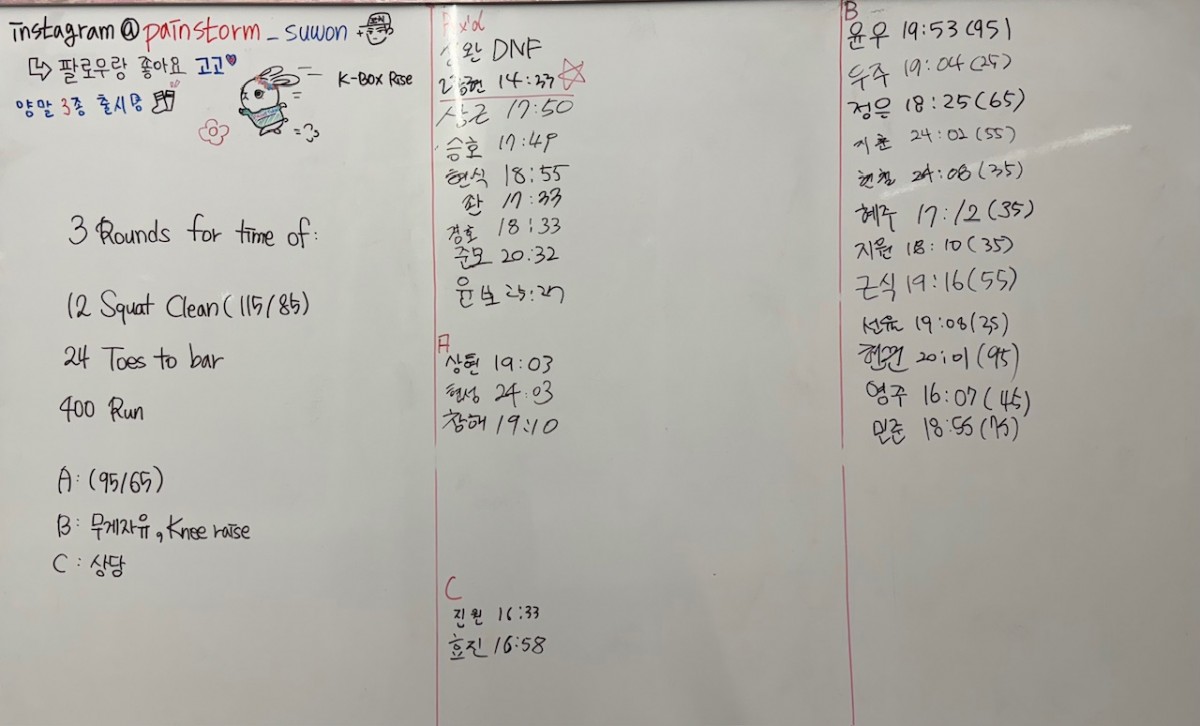 instagram@painstorm_suwon
팔로우랑 좋아요 고고
양말 3종 출시중
K-BOX Rise
3 Rounds for time of:
12 Squat Clean (115/85)
24 Toes to bar
400 Run
A: (95/65)
B: 무게자유, Knee raise
C: 상담
Rx'd
완 DNF
현 14:37
상근 17:50
승호 17:49
현식 18:55
좐 17:33
경호 18:33
준모 20:32
윤보 25:27
A
상현 19:03
현성 24:03
창해 19:10
C
진원 16:33
효진 16:58
B
윤우 19:53 (95)
우주 19:04 (25)
정은 18:25 (65)
지훈 24:02 (55)
현철 24:08 (35)
혜주 17:12 (35)
지원 18:10 (35)
근식 19:16 (55)
선유 19:08 (35)
20:01 (95)
영주 16:07 (45)
민준 18:55 (75)